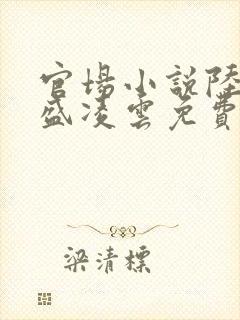 官場小說陸
盛凌雲免費
梁清標